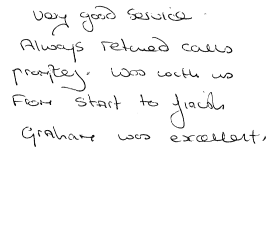 very good service.
Always retuned calls
promptley. was with us
From start to finish
Graham was excellent.